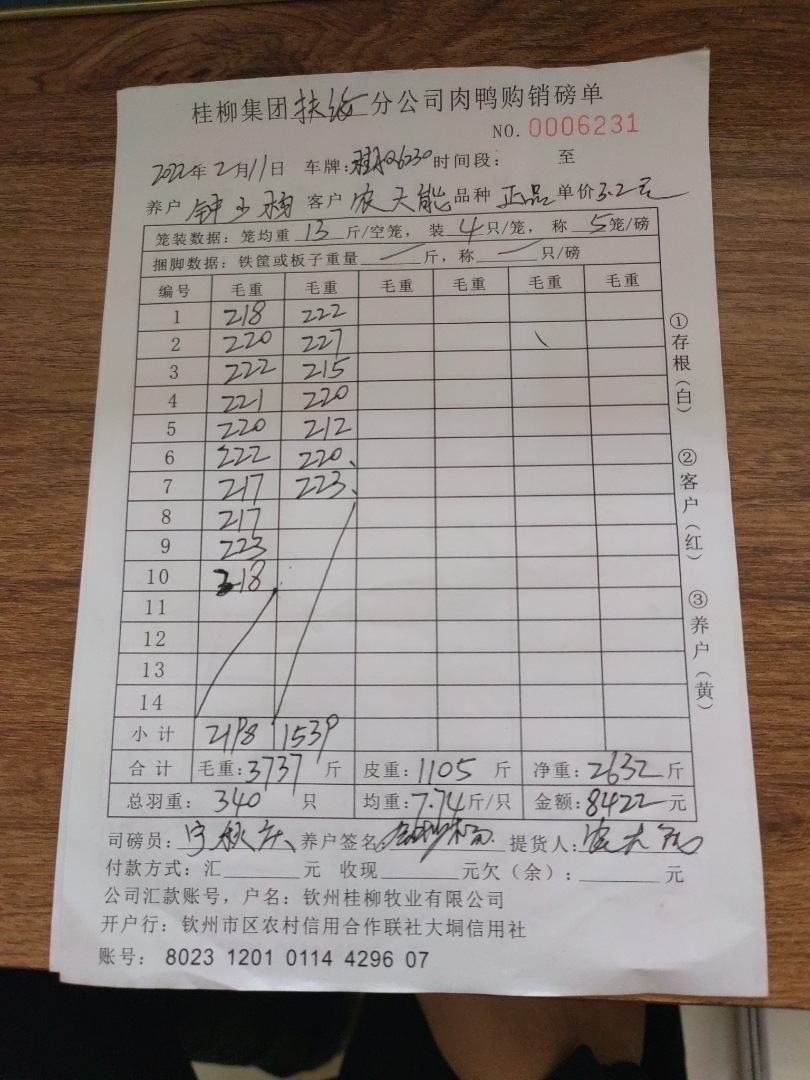 桂柳集团扶绥分公司肉鸭购销磅单
NO. 0006231
2022年2月11日 车牌: 时间段: 至
养户 钟 客户 农天能 品种 正品 单价3.2元
笼装数据: 笼均重 13 斤/空笼, 装 4 只/笼, 称 5 笼/磅
捆脚数据: 铁筐或板子重量 — 斤, 称 — 只/磅
编号 毛重 毛重 毛重 毛重 毛重 毛重
1 218 222
2 220 227
3 222 215
4 221 220
5 220 212
6 222 220
7 217 223
8 217
9 223
10 218
11
12
13
14
小计 2198 1539
合计 毛重:3737 斤 皮重:1105 斤 净重:2632 斤
总羽重: 340 只 均重:7.74斤/只 金额:8422 元
司磅员: 养户签名 提货人:
付款方式: 汇______元 收现______元欠(余):______元
公司汇款账号, 户名: 钦州桂柳牧业有限公司
开户行: 钦州市区农村信用合作联社大垌信用社
账号: 8023 1201 0114 4296 07
①存根(白)
②客户(红)
③养户(黄)